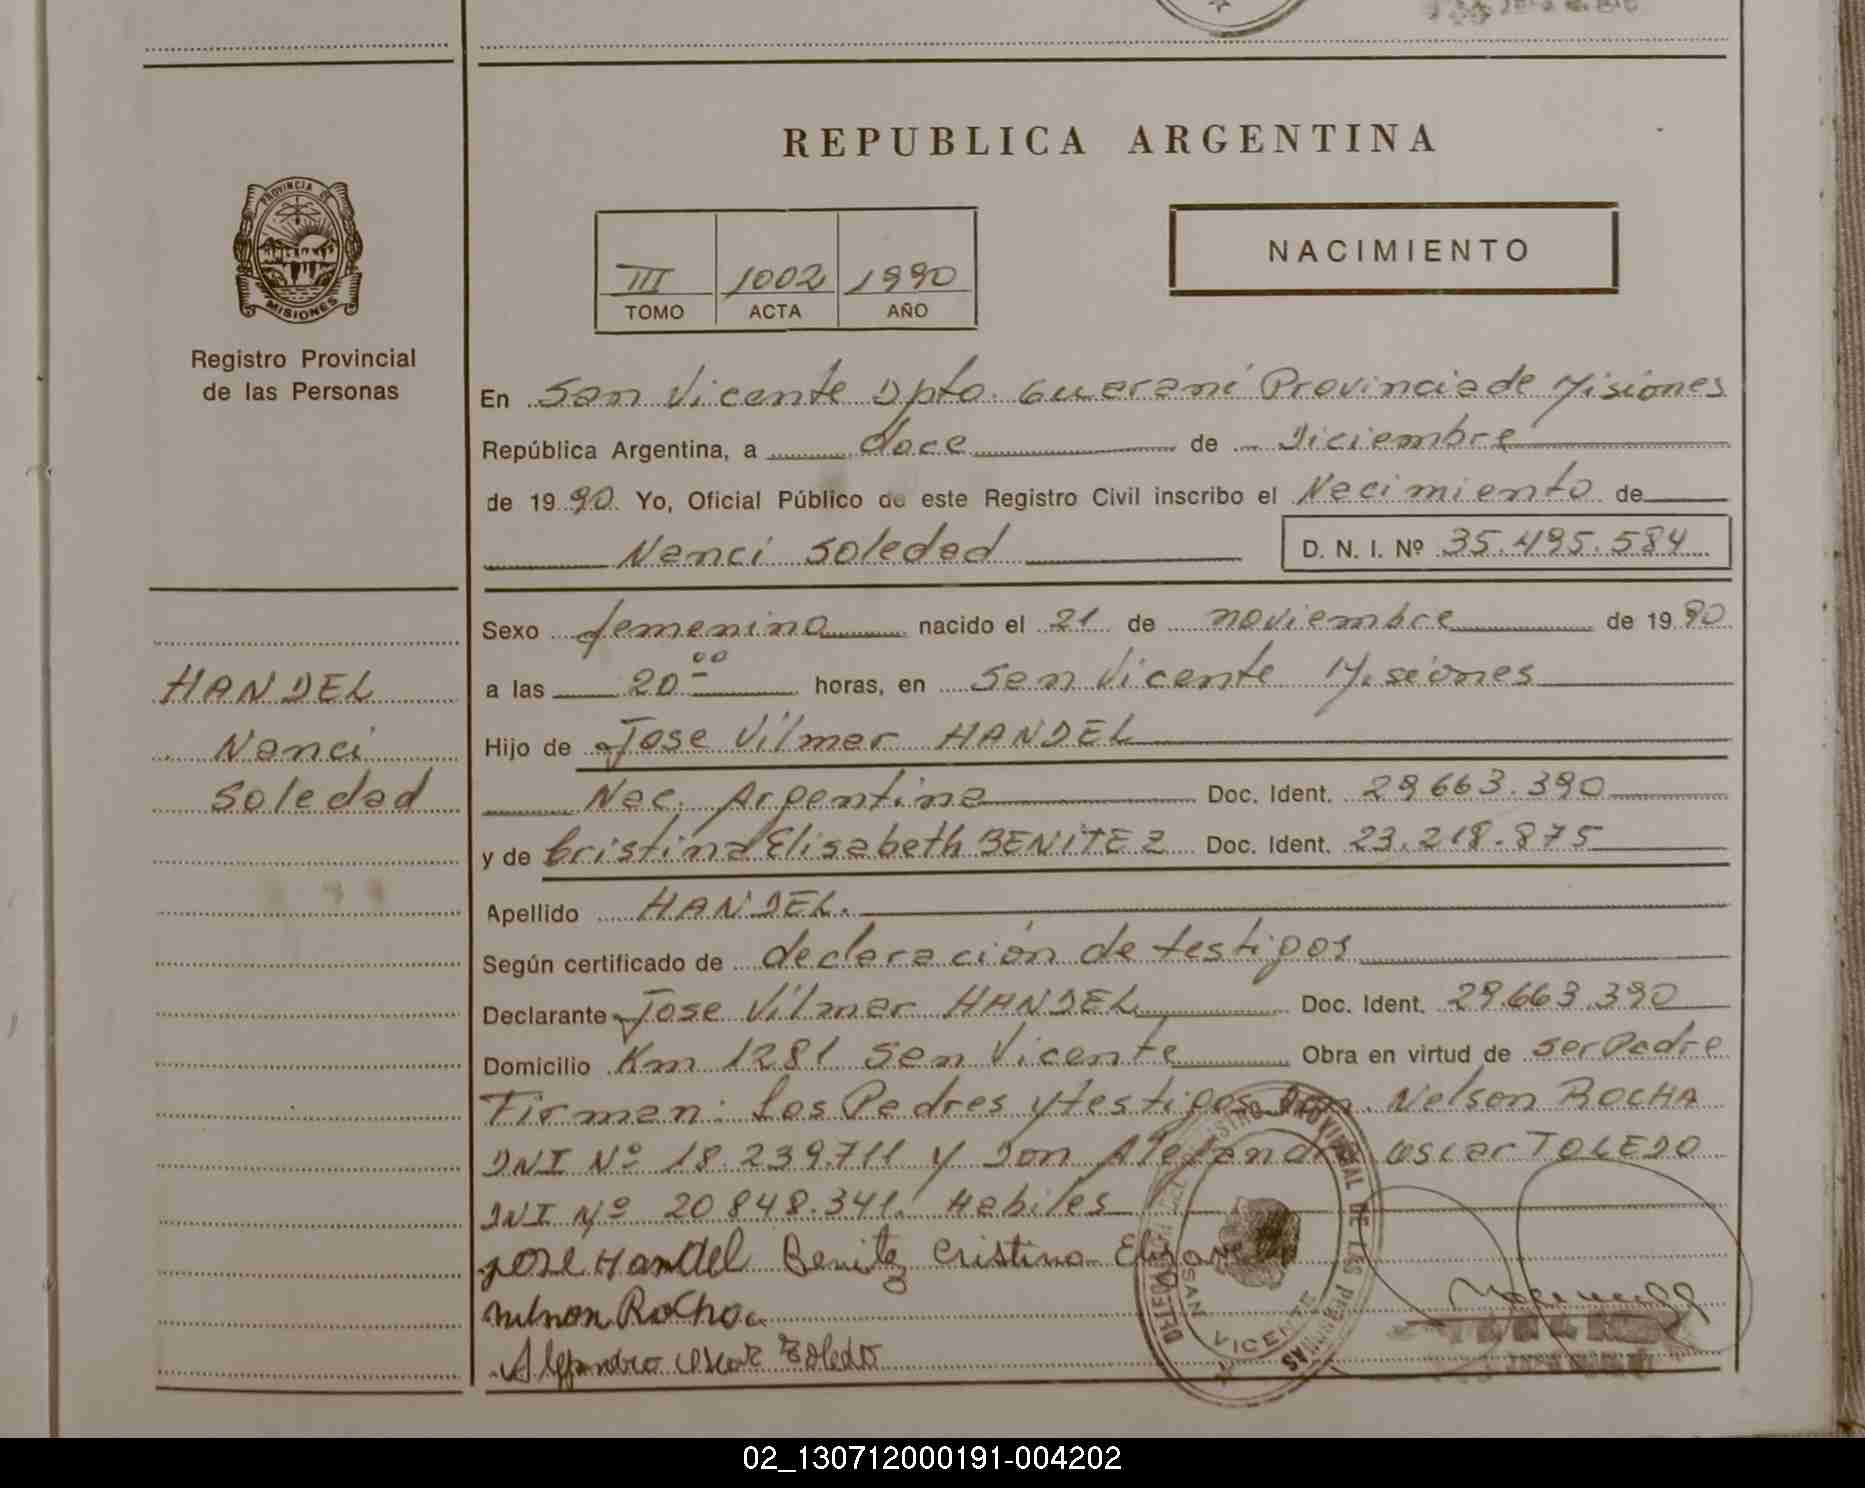 REPUBLICA ARGENTINA
PROVINCIA DE
MISIONES
Registro Provincial
de las Personas
III 1002 1990
TOMO ACTA AÑO
NACIMIENTO
En San Vicente Dpto. Guaraní Provincia de Misiones
República Argentina, a doce de Diciembre
de 1990. Yo, Oficial Público de este Registro Civil inscribo el Nacimiento de
Nanci Soledad D. N. I. Nº 35.495.584
HANDEL
Nanci
Soledad
Sexo femenino nacido el 21 de noviembre de 1990
a las 20 00 horas, en San Vicente Misiones
Hijo de Jose Vilmar HANDEL
Nac. Argentina Doc. Ident. 29.663.390
y de Cristina Elisabeth BENITEZ Doc. Ident. 23.218.875
Apellido HANDEL.
Según certificado de declaración de testigos
Declarante Jose Vilmar HANDEL Doc. Ident. 29.663.390
Domicilio Km 1281 San Vicente Obra en virtud de ser Padre
Firman: Los Padres y testigos Don. Nelson ROCHA
DNI Nº 18.239.711 y Don Alejandro Oscar TOLEDO
DNI Nº 20.848.341. Habiles
Jose Handel Benitez Cristina
Nelson Rocha
Alejandro Oscar Toledo
SAN VICENTE
02_130712000191-004202